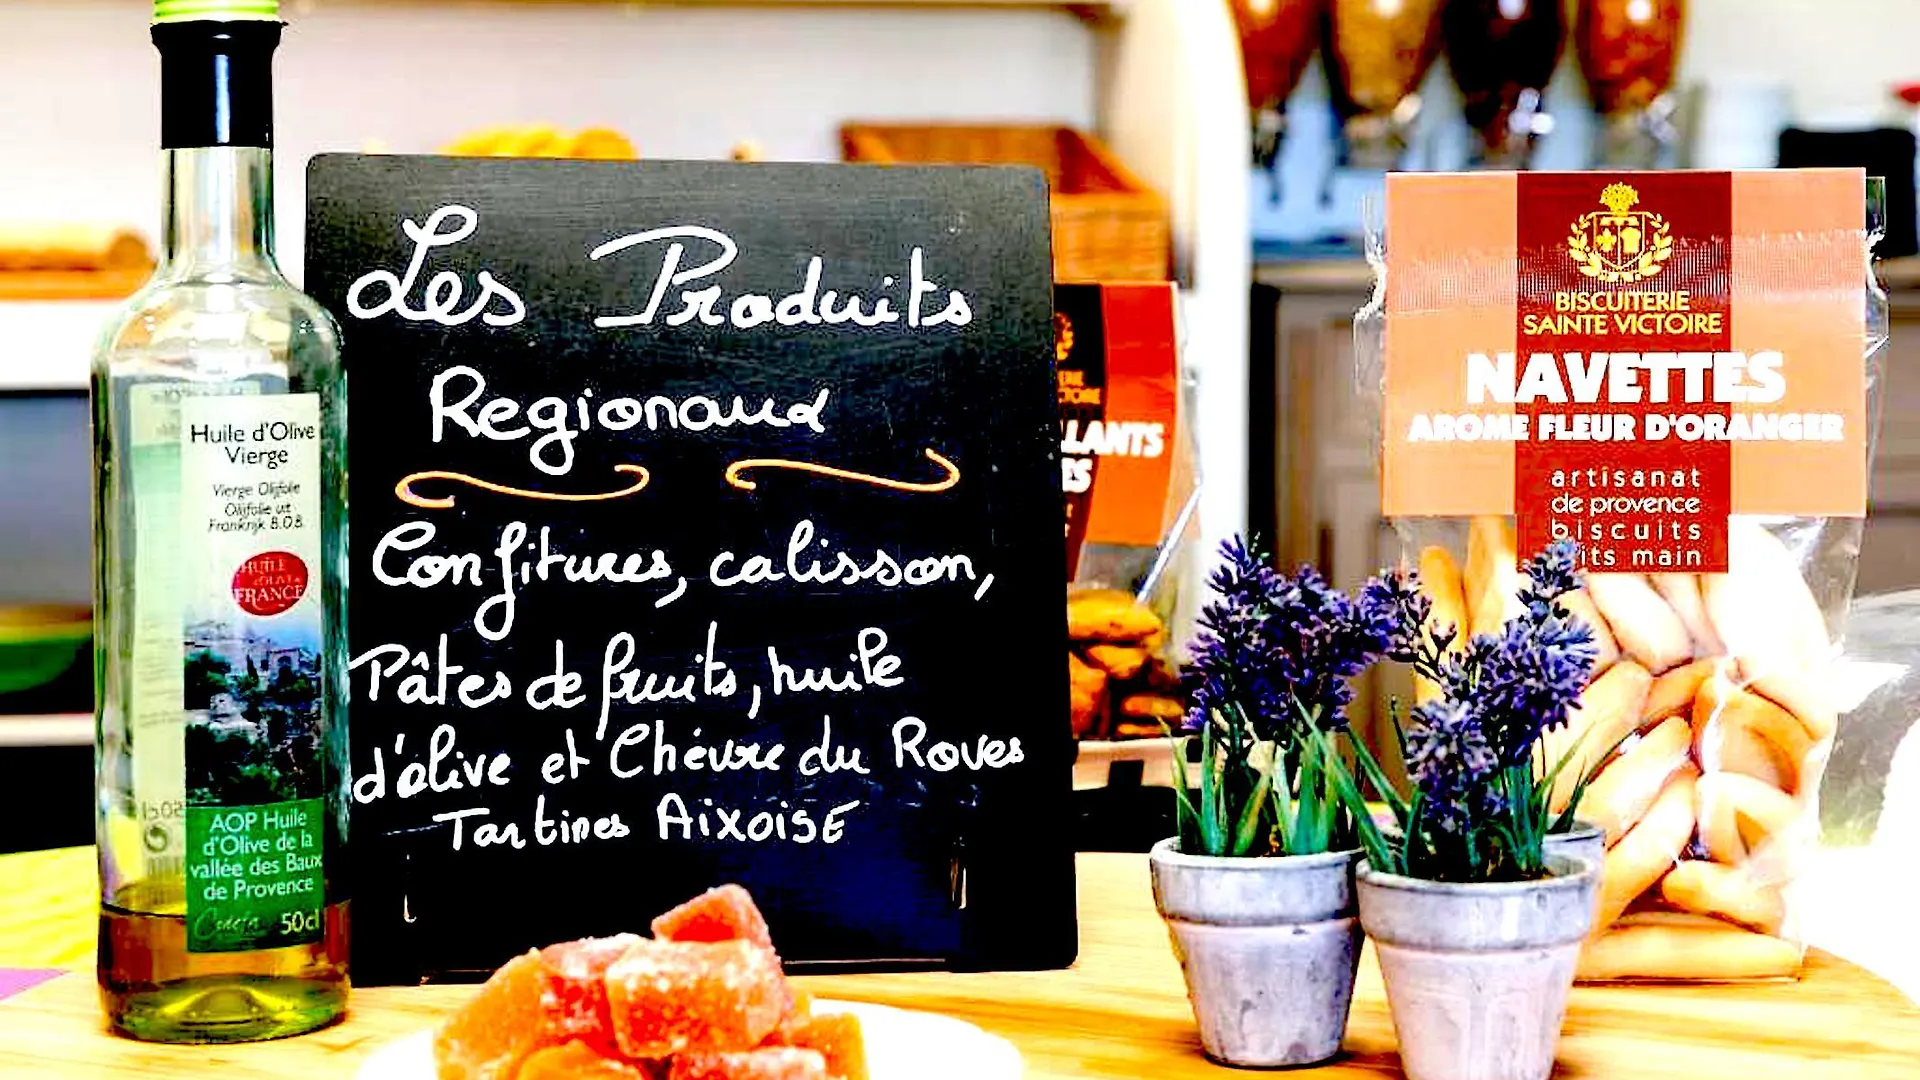 Les Produits
Regionaux
Confitures, calisson,
Pâtes de fruits, huile
d'olive et Chèvre du Roves
Tartines AixoisE
Huile d'Olive
Vierge
Vierge Olijfolie
Olijfolie uit
Frankrijk B.O.B.
HUILE
d'OLIVE
FRANCE
AOP Huile
d'Olive de la
vallée des Baux
de Provence
50cl
LLANTS
BISCUITERIE
SAINTE VICTOIRE
NAVETTES
AROME FLEUR D'ORANGER
artisanat
de provence
biscuits
its main